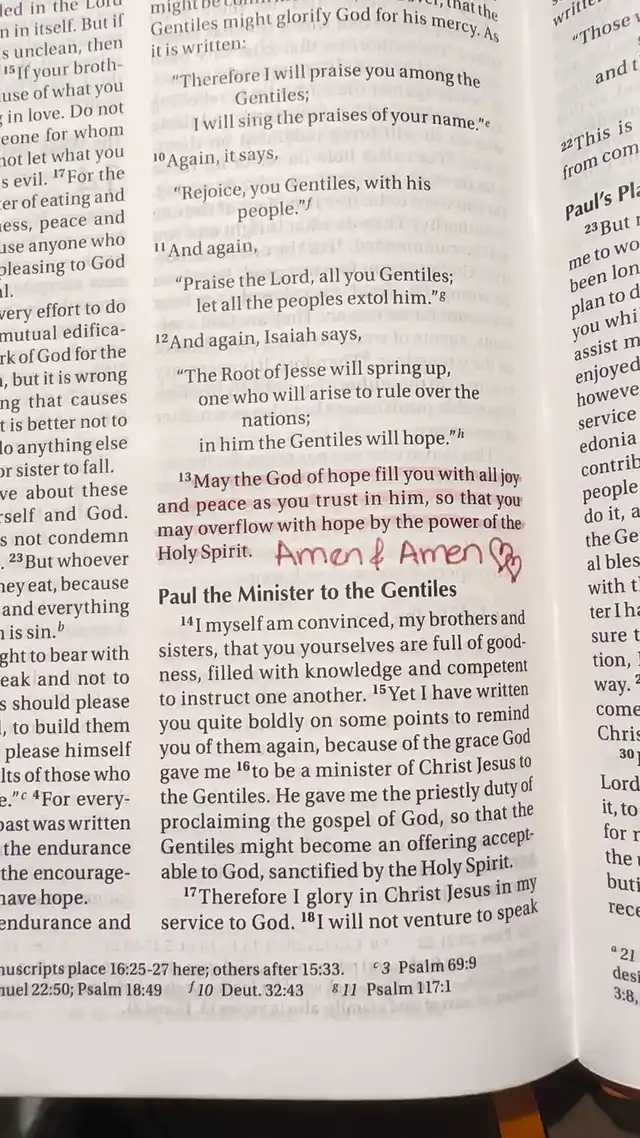 led in the Lord
n in itself. But if
s unclean, then
15If your broth-
use of what you
g in love. Do not
eone for whom
not let what you
s evil. 17For the
ter of eating and
ness, peace and
use anyone who
pleasing to God
al.
very effort to do
mutual edifica-
rk of God for the
n, but it is wrong
ng that causes
t is better not to
do anything else
or sister to fall.
ve about these
rself and God.
s not condemn
. 23But whoever
they eat, because
and everything
n is sin.b
ght to bear with
eak and not to
s should please
l, to build them
please himself
lts of those who
e."c 4For every-
past was written
the endurance
the encourage-
have hope.
endurance and
that the
Gentiles might glorify God for his mercy. As
it is written:
"Therefore I will praise you among the
Gentiles;
I will sing the praises of your name."e
10Again, it says,
"Rejoice, you Gentiles, with his
people."f
11And again,
"Praise the Lord, all you Gentiles;
let all the peoples extol him."g
12And again, Isaiah says,
"The Root of Jesse will spring up,
one who will arise to rule over the
nations;
in him the Gentiles will hope."h
13May the God of hope fill you with all joy
and peace as you trust in him, so that you
may overflow with hope by the power of the
Holy Spirit. Amen & Amen
Paul the Minister to the Gentiles
14I myself am convinced, my brothers and
sisters, that you yourselves are full of good-
ness, filled with knowledge and competent
to instruct one another. 15Yet I have written
you quite boldly on some points to remind
you of them again, because of the grace God
gave me 16to be a minister of Christ Jesus to
the Gentiles. He gave me the priestly duty of
proclaiming the gospel of God, so that the
Gentiles might become an offering accept-
able to God, sanctified by the Holy Spirit.
17Therefore I glory in Christ Jesus in my
service to God. 18I will not venture to speak
nuscripts place 16:25-27 here; others after 15:33. c3 Psalm 69:9
nuel 22:50; Psalm 18:49 f10 Deut. 32:43 g11 Psalm 117:1
"Those
and t
22This is
from com
Paul's Pla
23But
me to wo
been lon
plan to d
you whi
assist m
enjoyed
howeve
service
edonia
contrib
people
do it, a
the Ge
al bles
with t
ter I ha
sure t
tion, I
way. 2
come
Chris
30
Lord
it, to
for r
the
buti
rece
a21
desi
3:8,